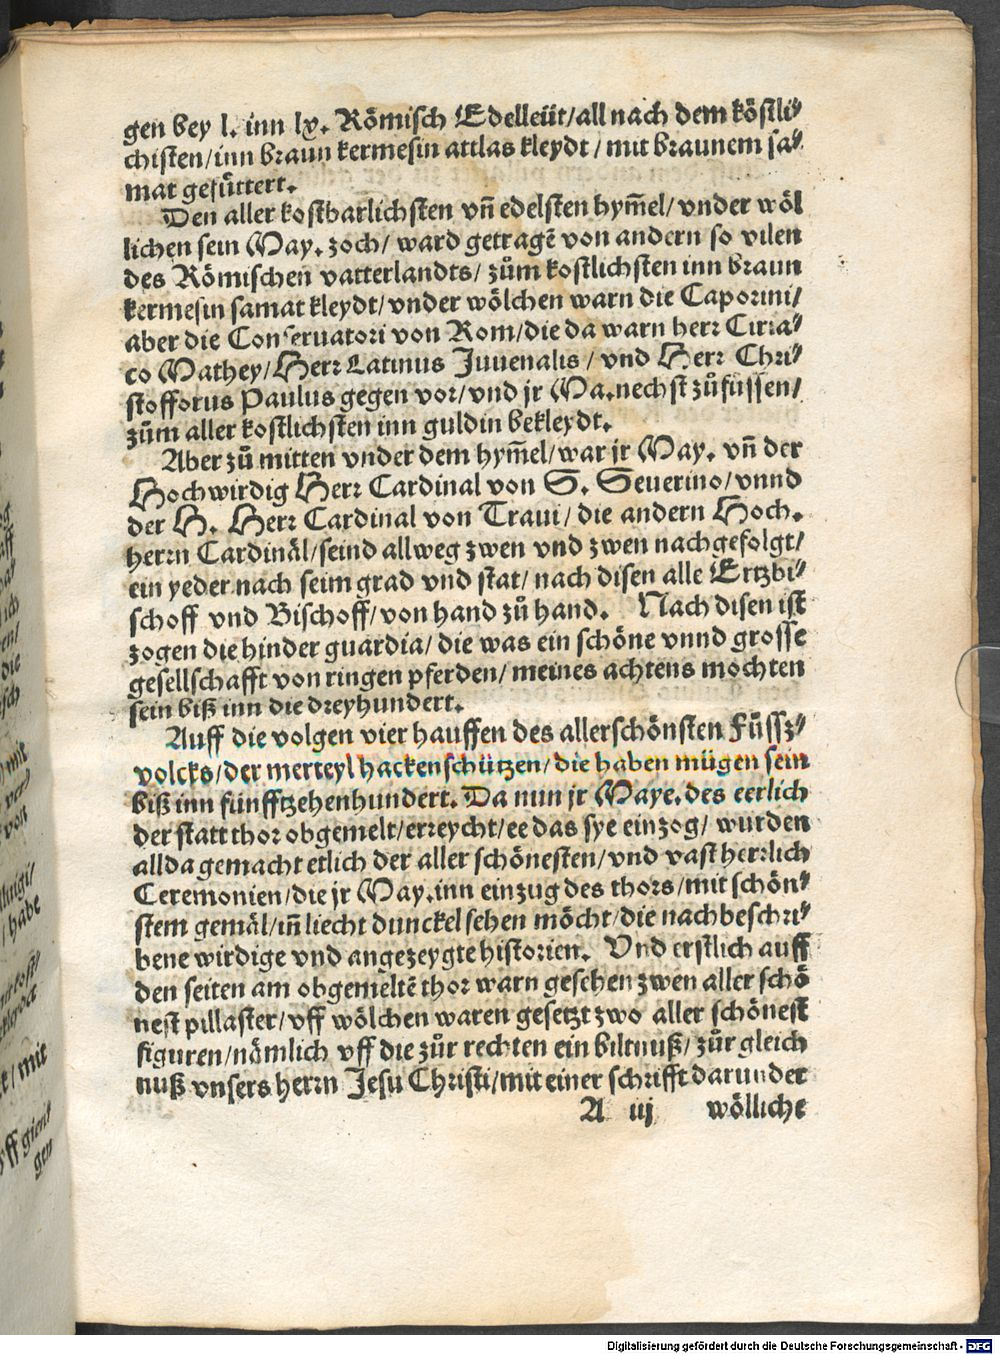 gen bey l. inn lx. Römisch Edelleüt/all nach dem köstli⸗
chisten/inn braun kermesin attlas kleydt/mit braunem sa⸗
mat gefüttert.
Den aller kostbarlichsten vñ edelsten hym̃el/vnder wöl
lichen sein May. zoch/ward getragẽ von andern so vilen
des Römischen vatterlandts/zům kostlichsten inn braun
kermesin samat kleydt/vnder wölchen warn die Caporini/
aber die Conseruatori von Rom/die da warn herr Ciria⸗
co Mathey/Herr Latinus Juuenalis/vnd Herr Chri⸗
stofforus Paulus gegen vor/vnd jr Ma. nechst zůfüssen/
zům aller kostlichsten inn guldin bekleydt.
Aber zů mitten vnder dem hym̃el/war jr May. vñ der
Hochwirdig Herr Cardinal von S. Seuerino/vnnd
der H. Herr Cardinal von Traui/die andern Hoch.
herrn Cardinäl/seind allweg zwen vnd zwen nachgefolgt/
ein yeder nach seim grad vnd stat/nach disen alle Ertzbi⸗
schoff vnd Bischoff/von hand zů hand. Nach disen ist
zogen die hinder guardia/die was ein schöne vnnd grosse
gesellschafft von ringen pferden/meines achtens mochten
sein biß inn die dreyhundert.
Auff die volgen vier hauffen des allerschönsten Fůssz⸗
volcks/der merteyl hackenschützen/die haben mügen sein
biß inn fünfftzehenhundert. Da nun jr Maye. des eerlich
der statt thor obgemelt/erreycht/ee das sye einzog/wurden
allda gemacht etlich der aller schönesten/vnd vast herrlich
Ceremonien/die jr May. inn einzug des thors/mit schön⸗
stem gemäl/iñ liecht dunckel sehen möcht/die nachbeschri⸗
bene wirdige vnd angezeygte historien. Vnd erstlich auff
den seiten am obgemeltẽ thor warn gesehen zwen aller schö
nest pillaster/vff wölchen waren gesetzt zwo aller schönest
figuren/nämlich vff die zůr rechten ein biltnuß/zůr gleich
nuß vnsers herrn Jesu Christi/mit einer schrifft darunder
A iij wölliche
Digitalisierung gefördert durch die Deutsche Forschungsgemeinschaft - DFG